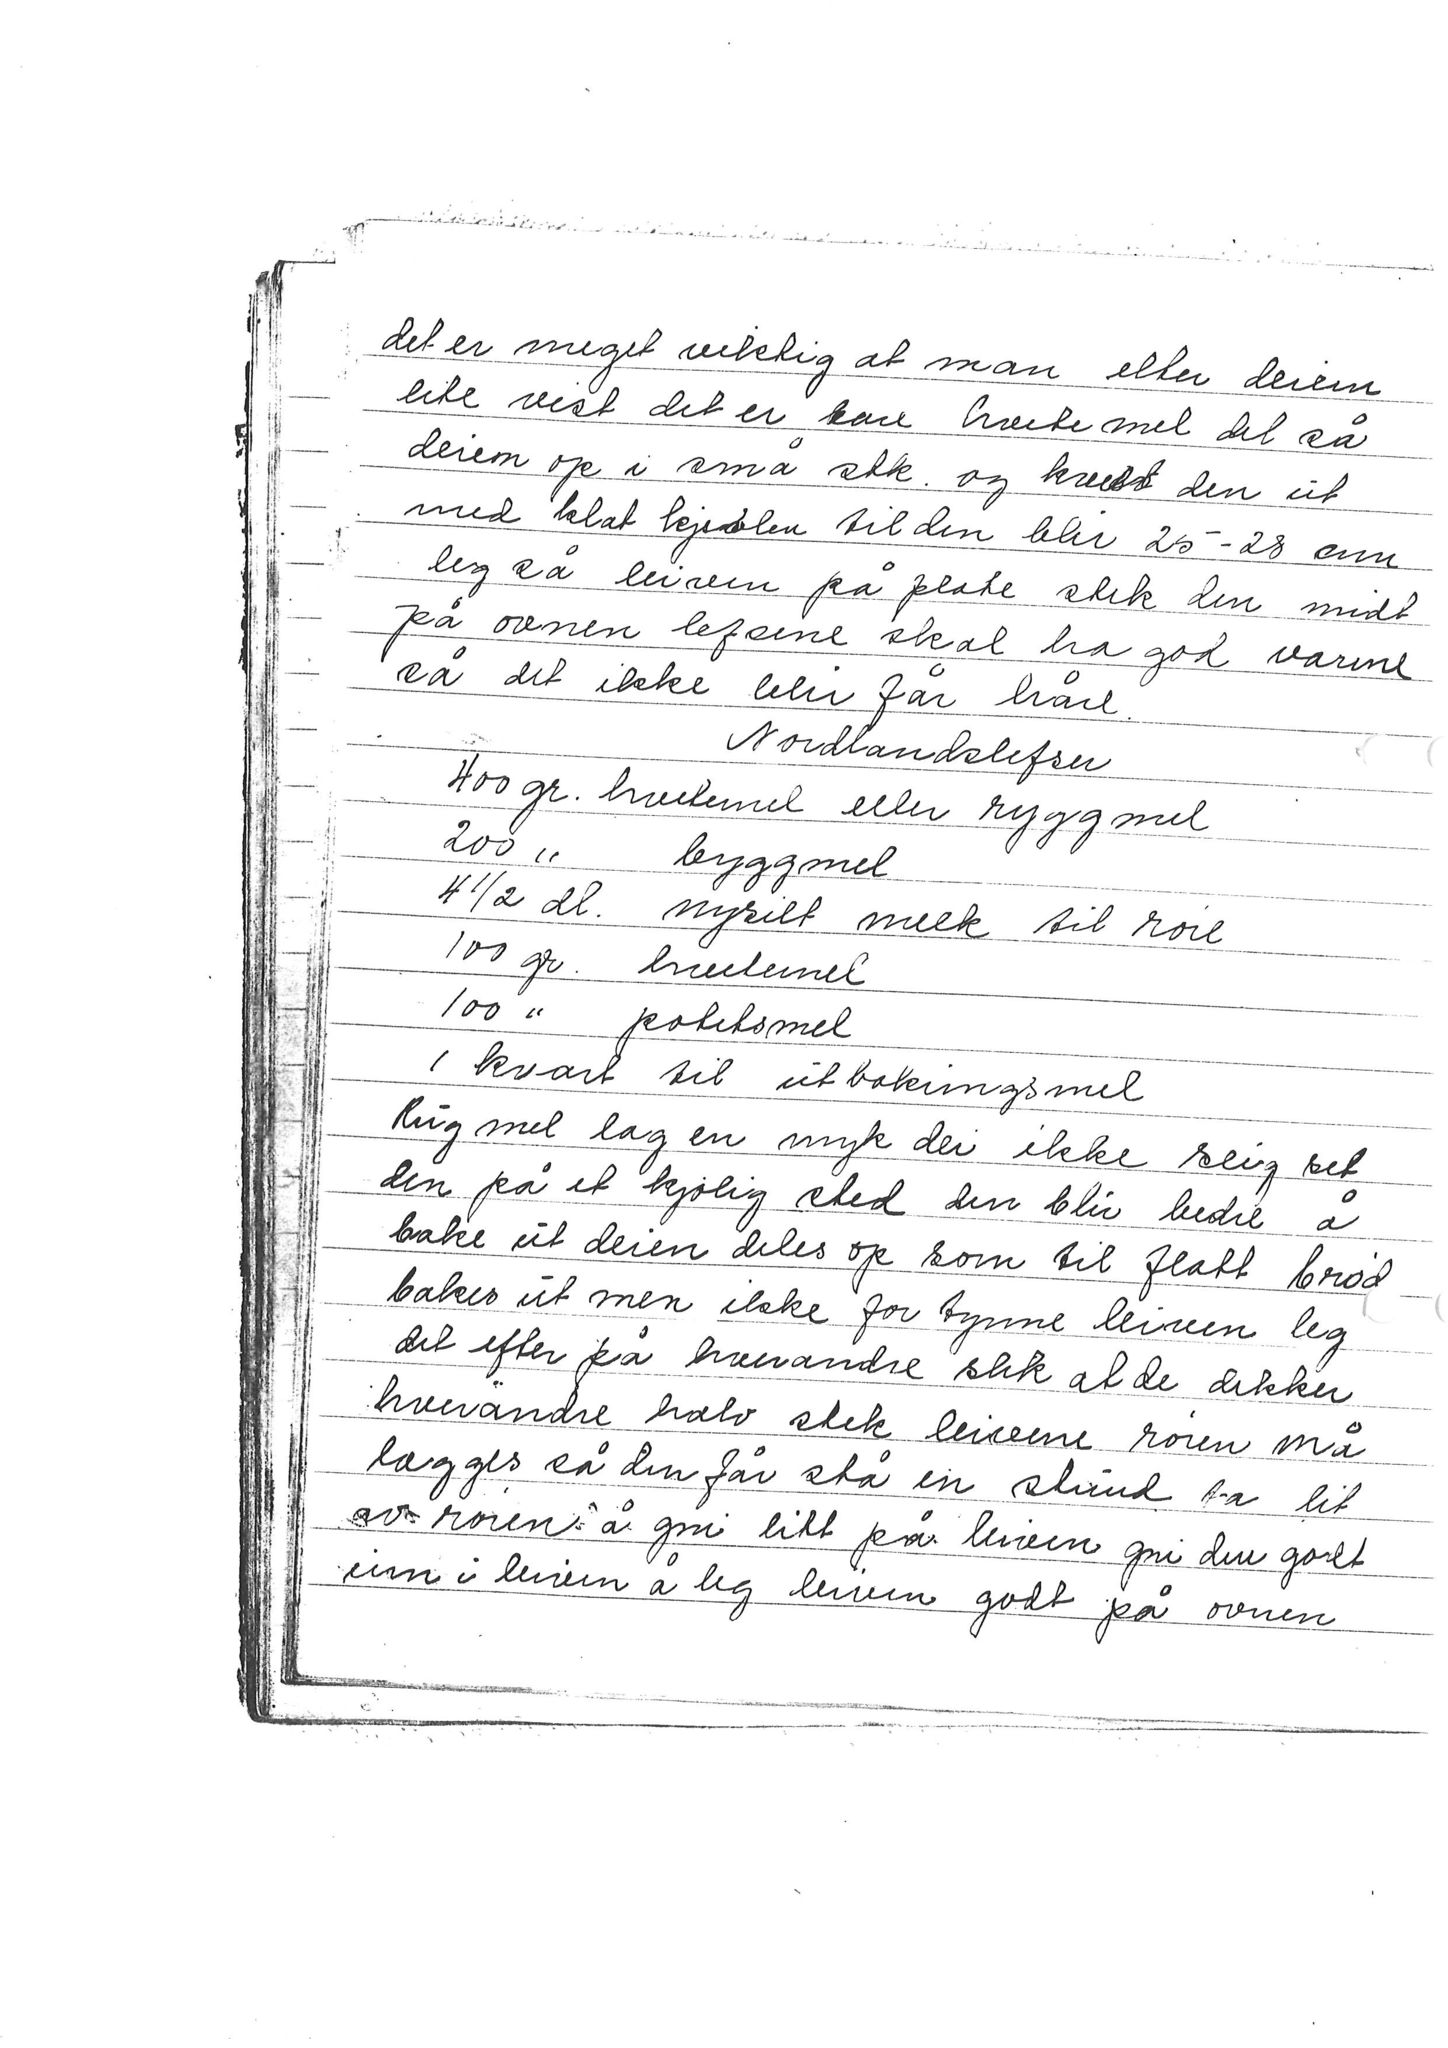 det er meget viktig at man elter deien
lite vist det er bare hvete mel del så
deien op i små stk. og den út
med klat kjevlen til den blir 25-28 cm
leg så leiven på plate stek den midt
på ovnen lefsene skal ha god varme
så det ikke blir får håre.
Nordlandslefser
400 gr. hvetemel eller ryggmel
200 " byggmel
4 1/2 dl. nysilt melk til röre
100 gr. hvetemel
100 " potetsmel
1 kvart til útbakingsmel
Rúgmel lag en myk dei ikke seig set
den på et kjölig sted den blir bedre å
bake út deien deles op som til flatt bröd
bakes út men ikke for tynne leiven leg
det efter på hverandre slik at de dekker
hverandre halv stek leivene rören må
lagges så den får stå en stúnd ta lit
av rören å gni litt på leiven gni den godt
inn i leiven å leg leiven godt på ovnen